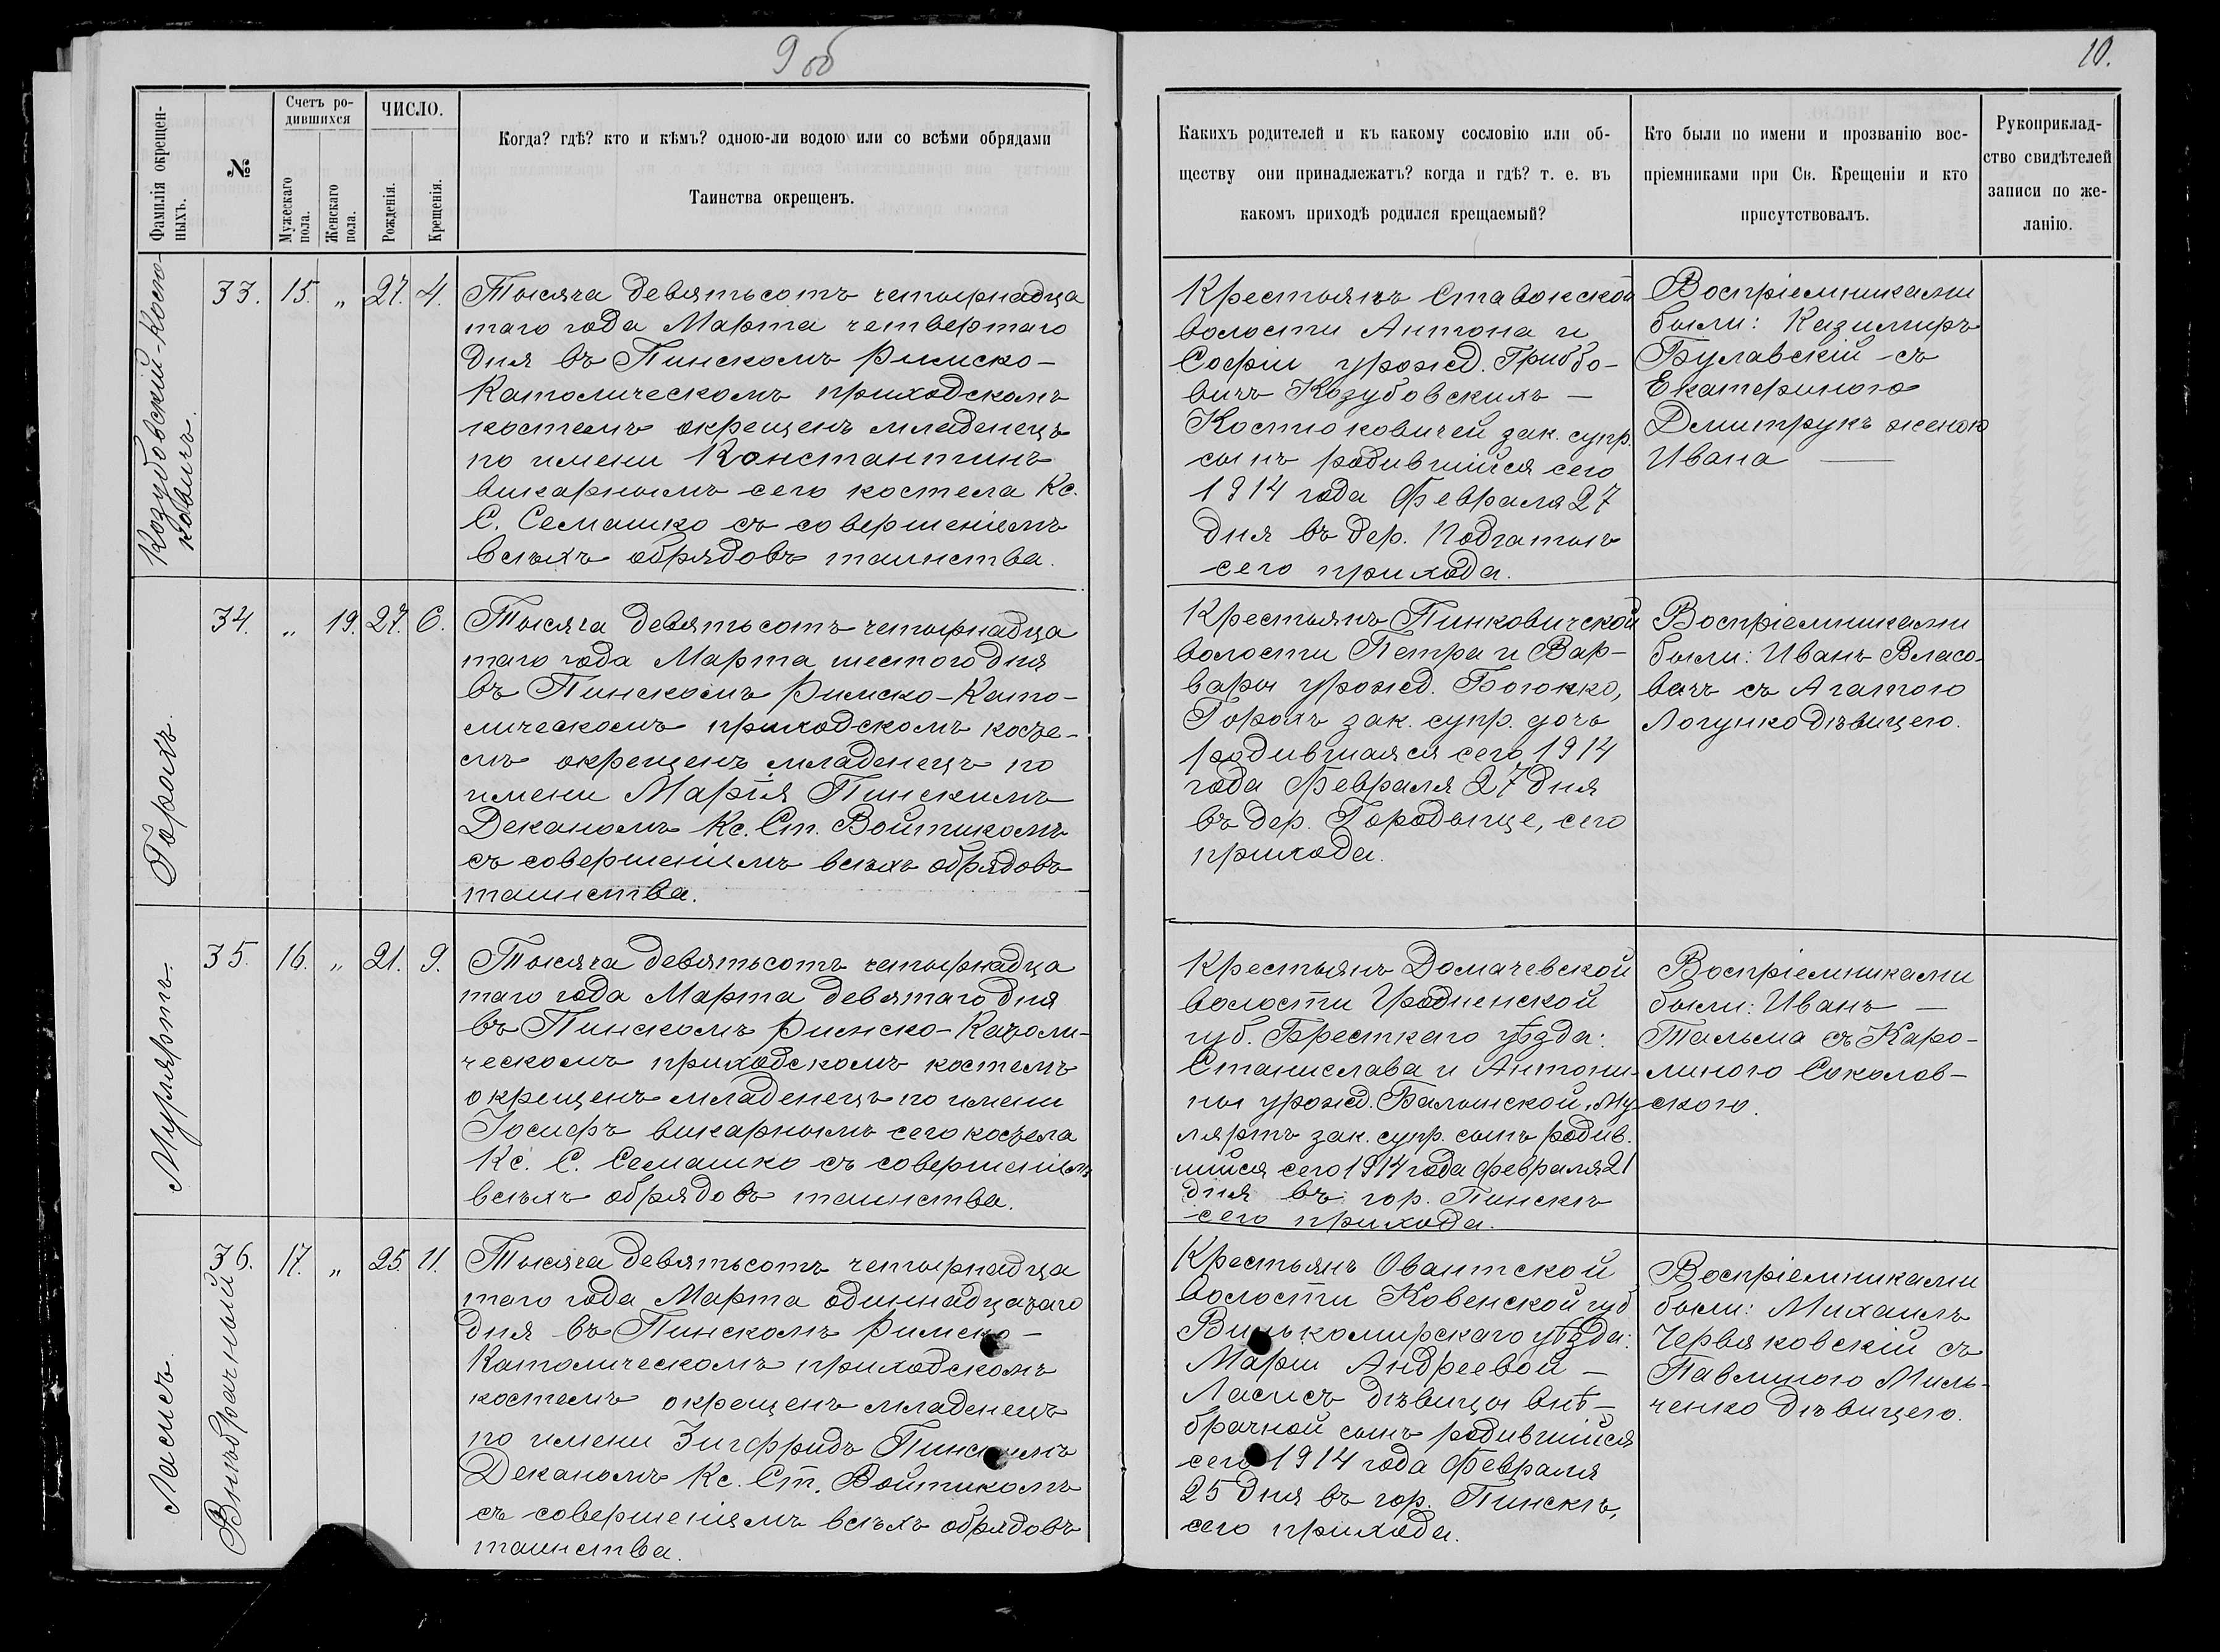 9 об
10.
Фамилія окрещен-
ныхъ.
№
Счетъ ро-
дившихся
Мужескаго
пола.
Женскаго
пола.
ЧИСЛО.
Рожденія.
Крещенія.
Когда? гдѣ? кто и кѣмъ? одною-ли водою или со всѣми обрядами
Таинства окрещенъ.
Какихъ родителей и къ какому сословію или об-
ществу они принадлежатъ? когда и гдѣ? т. е. въ
какомъ приходѣ родился крещаемый?
Кто были по имени и прозванію вос-
пріемниками при Св. Крещеніи и кто
присутствовалъ.
Рукоприклад-
ство свидѣтелей
записи по же-
ланію.
Козубовскій-Костю-
ковичъ.
33. 15. „ 27. 4.
Тысяча девятьсотъ четырнадца
таго года Марта четвертаго
дня въ Пинскомъ Римско-
Католическомъ приходскомъ
костелѣ окрещенъ младенецъ
по имени Константинъ
викарнымъ сего костела Кс.
С. Семашко съ совершеніемъ
всѣхъ обрядовъ таинства.
Крестьянъ Ставокской
волости Антона и
Софіи урожд. Гриббо-
вичъ Козубовскихъ —
Костюковичей зак. супр.
сынъ родившійся сего
1914 года Февраля 27
дня въ дер. Подгатьѣ
сего прихода.
Воспріемниками
были: Казимиръ
Булавскій съ
Екатериною
Дмитрукъ женою
Ивана —
Горохъ.
34. „ 19. 27. 6.
Тысяча девятьсотъ четырнадца
таго года Марта шестого дня
въ Пинскомъ Римско-Като-
лическомъ приходскомъ косте-
лѣ окрещенъ младенецъ по
имени Марія Пинскимъ
Деканомъ Кс. Ст. Войтикомъ
съ совершеніемъ всѣхъ обрядовъ
таинства.
Крестьянъ Пинковичской
волости Петра и Вар-
вары урожд. Богожко,
Горохъ зак. супр. дочь
родившаяся сего 1914
года Февраля 27 дня
въ дер. Городыще, сего
прихода.
Воспріемниками
были: Иванъ Власо-
вецъ съ Агатою
Логушко дѣвицею.
Мурляртъ.
35. 16. „ 21. 9.
Тысяча девятьсотъ четырнадца
таго года Марта девятаго дня
въ Пинскомъ Римско-Католи-
ческомъ приходскомъ костелѣ
окрещенъ младенецъ по имени
Іосифъ викарнымъ сего костела
Кс. С. Семашко съ совершеніемъ
всѣхъ обрядовъ таинства.
Крестьянъ Домачевской
волости Гродненской
губ. Бресткаго уѣзда:
Станислава и Антони-
ны урожд. Балынской, Му-
ляртъ зак. супр. сынъ родив.
шійся сего 1914 года Февраля 21
дня въ гор. Пинскѣ
сего прихода.
Воспріемниками
были: Иванъ —
Тальма съ Каро-
линою Соколов-
скою.
Ласисъ.
Внѣбрачный
36. 17. „ 25. 11.
Тысяча девятьсотъ четырнадца
таго года Марта одиннадцатаго
дня въ Пинскомъ Римско-
Католическомъ приходскомъ
костелѣ окрещенъ младенецъ
по имени Зигфридъ Пинскимъ
Деканомъ Кс. Ст. Войтикомъ
съ совершеніемъ всѣхъ обрядовъ
таинства.
Крестьянъ Овантской
волости Ковенской губ
Вилькомирскаго уѣзда:
Маріи Андреевой —
Ласисъ дѣвицы внѣ-
брачной сынъ родившійся
сего 1914 года Февраля
25 дня въ гор. Пинскѣ,
сего прихода.
Воспріемниками
были: Михаилъ
Червяковскій съ
Павлиною Миль-
ченко дѣвицею.